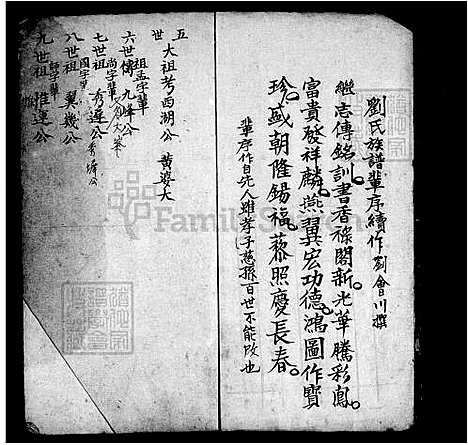 劉氏族譜輩序續作劉會川撰
繼志傳銘訓書香祿閣新光華騰彩鳳
富貴發祥麟燕翼宏功德鴻圖作寶
珍盛朝隆錫福藜照慶長春
輩序作自先人雖孝子慈孫百世不能改也
五世
大祖考西湖公 黃婆大
祖孟字輩
六世傳 九峰公
尚字輩
七世祖 秀達公
國字輩
八世祖 翼幾公
九世祖 推連公
FamilySearch